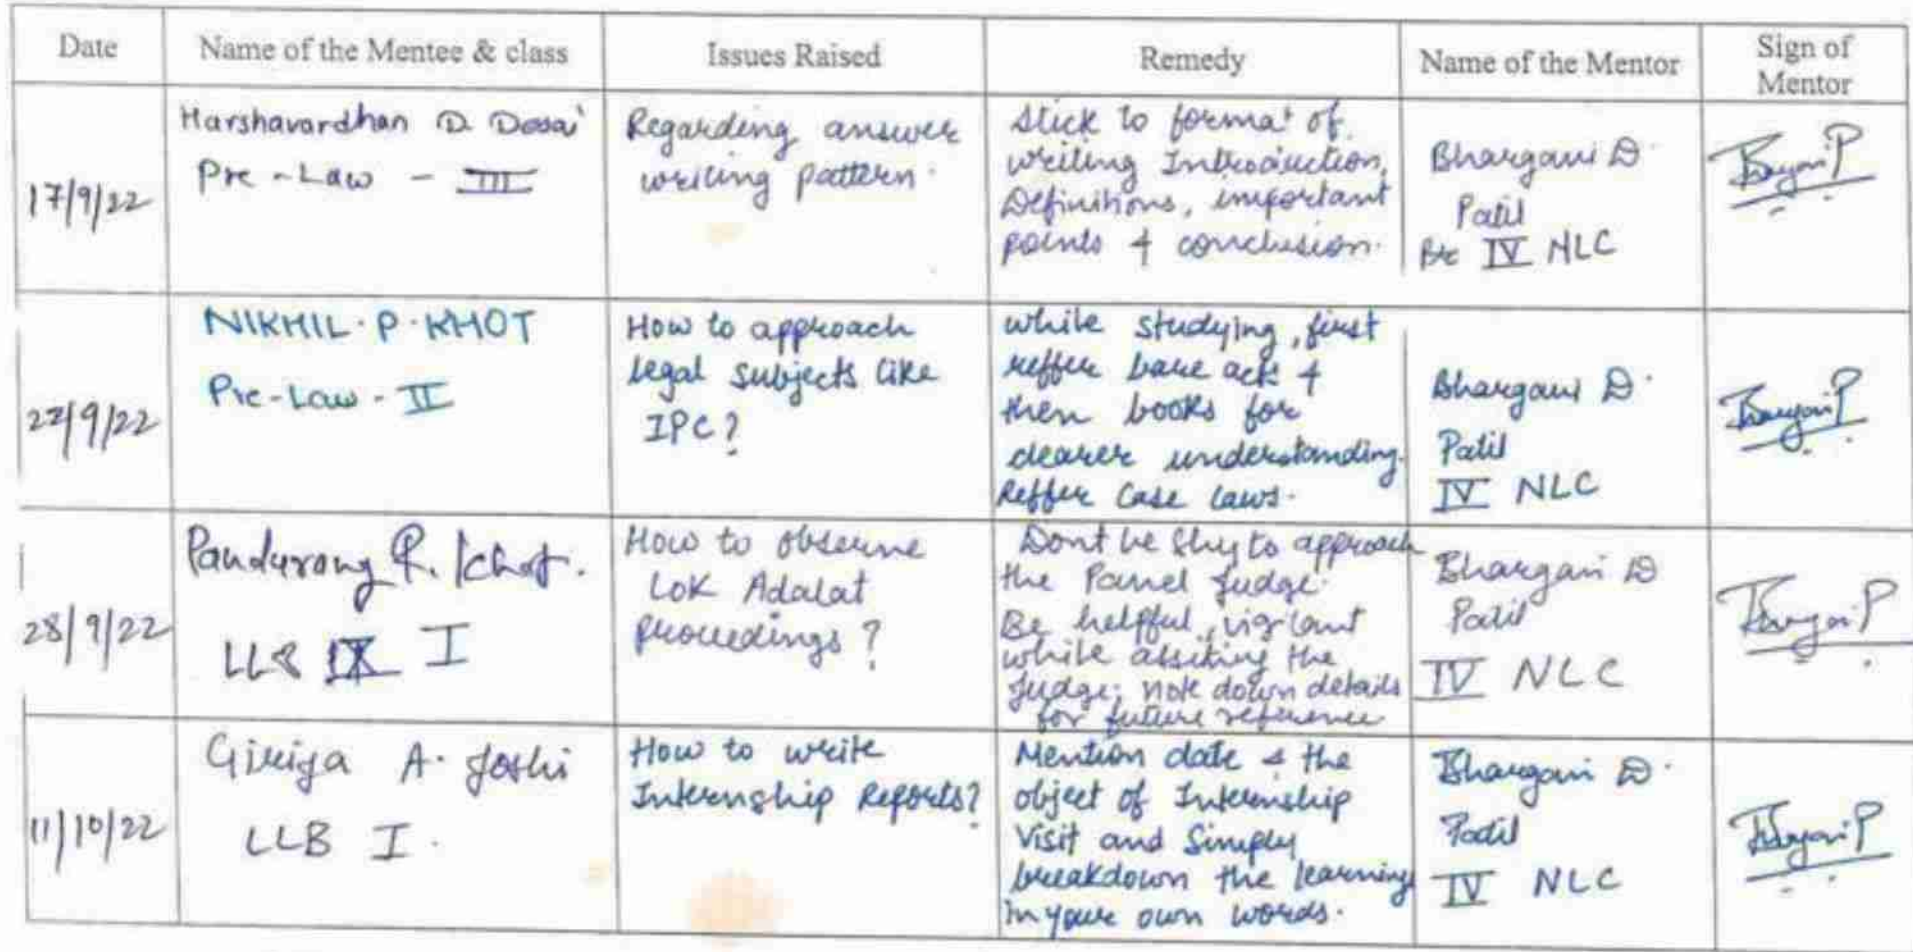 Date
Name of the Mentee & class
Issues Raised
Remedy
Name of the Mentor
Sign of
Mentor
17/9/22
Harshavardhan D. Desai
Pre-Law - III
Regarding answer
writing pattern.
Stick to format of
writing Introduction,
Definitions, important
points & conclusion.
Bhargavi D.
Patil
IV NLC
22/9/22
NIKHIL.P.KHOT
Pre-Law - II
How to approach
legal subjects like
IPC?
while studying, first
reffer bare acts &
then books for
clearer understanding.
Reffer Case laws.
Bhargavi D.
Patil
IV NLC
28/9/22
Pandurang R. Khot.
LLB I
How to observe
Lok Adalat
proceedings?
Dont be shy to approach
the Panel Judge.
Be helpful, vigilant
while assiting the
Judge; note down details
for future reference
Bhargavi D
Patil
IV NLC
11/10/22
Girija A. Joshi
LLB I.
How to write
Internship Reports?
Mention date & the
object of Internship
Visit and Simply
breakdown the learning
in your own words.
Bhargavi D.
Patil
IV NLC